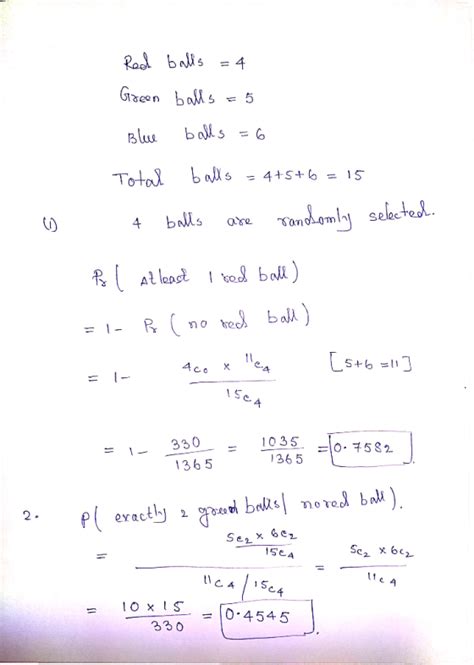 Red balls = 4
Green balls = 5
Blue balls = 6
Total balls = 4+5+6 = 15
(1) 4 balls are randomly selected.
Pr ( Atleast 1 red ball )
= 1 - Pr ( no red ball )
= 1 - 4C0 x 11C4 / 15C4 [5+6 = 11]
= 1 - 330/1365 = 1035/1365 = 0.7582
2. P( exactly 2 green balls / no red ball ).
= (5C2 x 6C2 / 15C4) / (11C4 / 15C4) = 5C2 x 6C2 / 11C4
= 10 x 15 / 330 = 0.4545